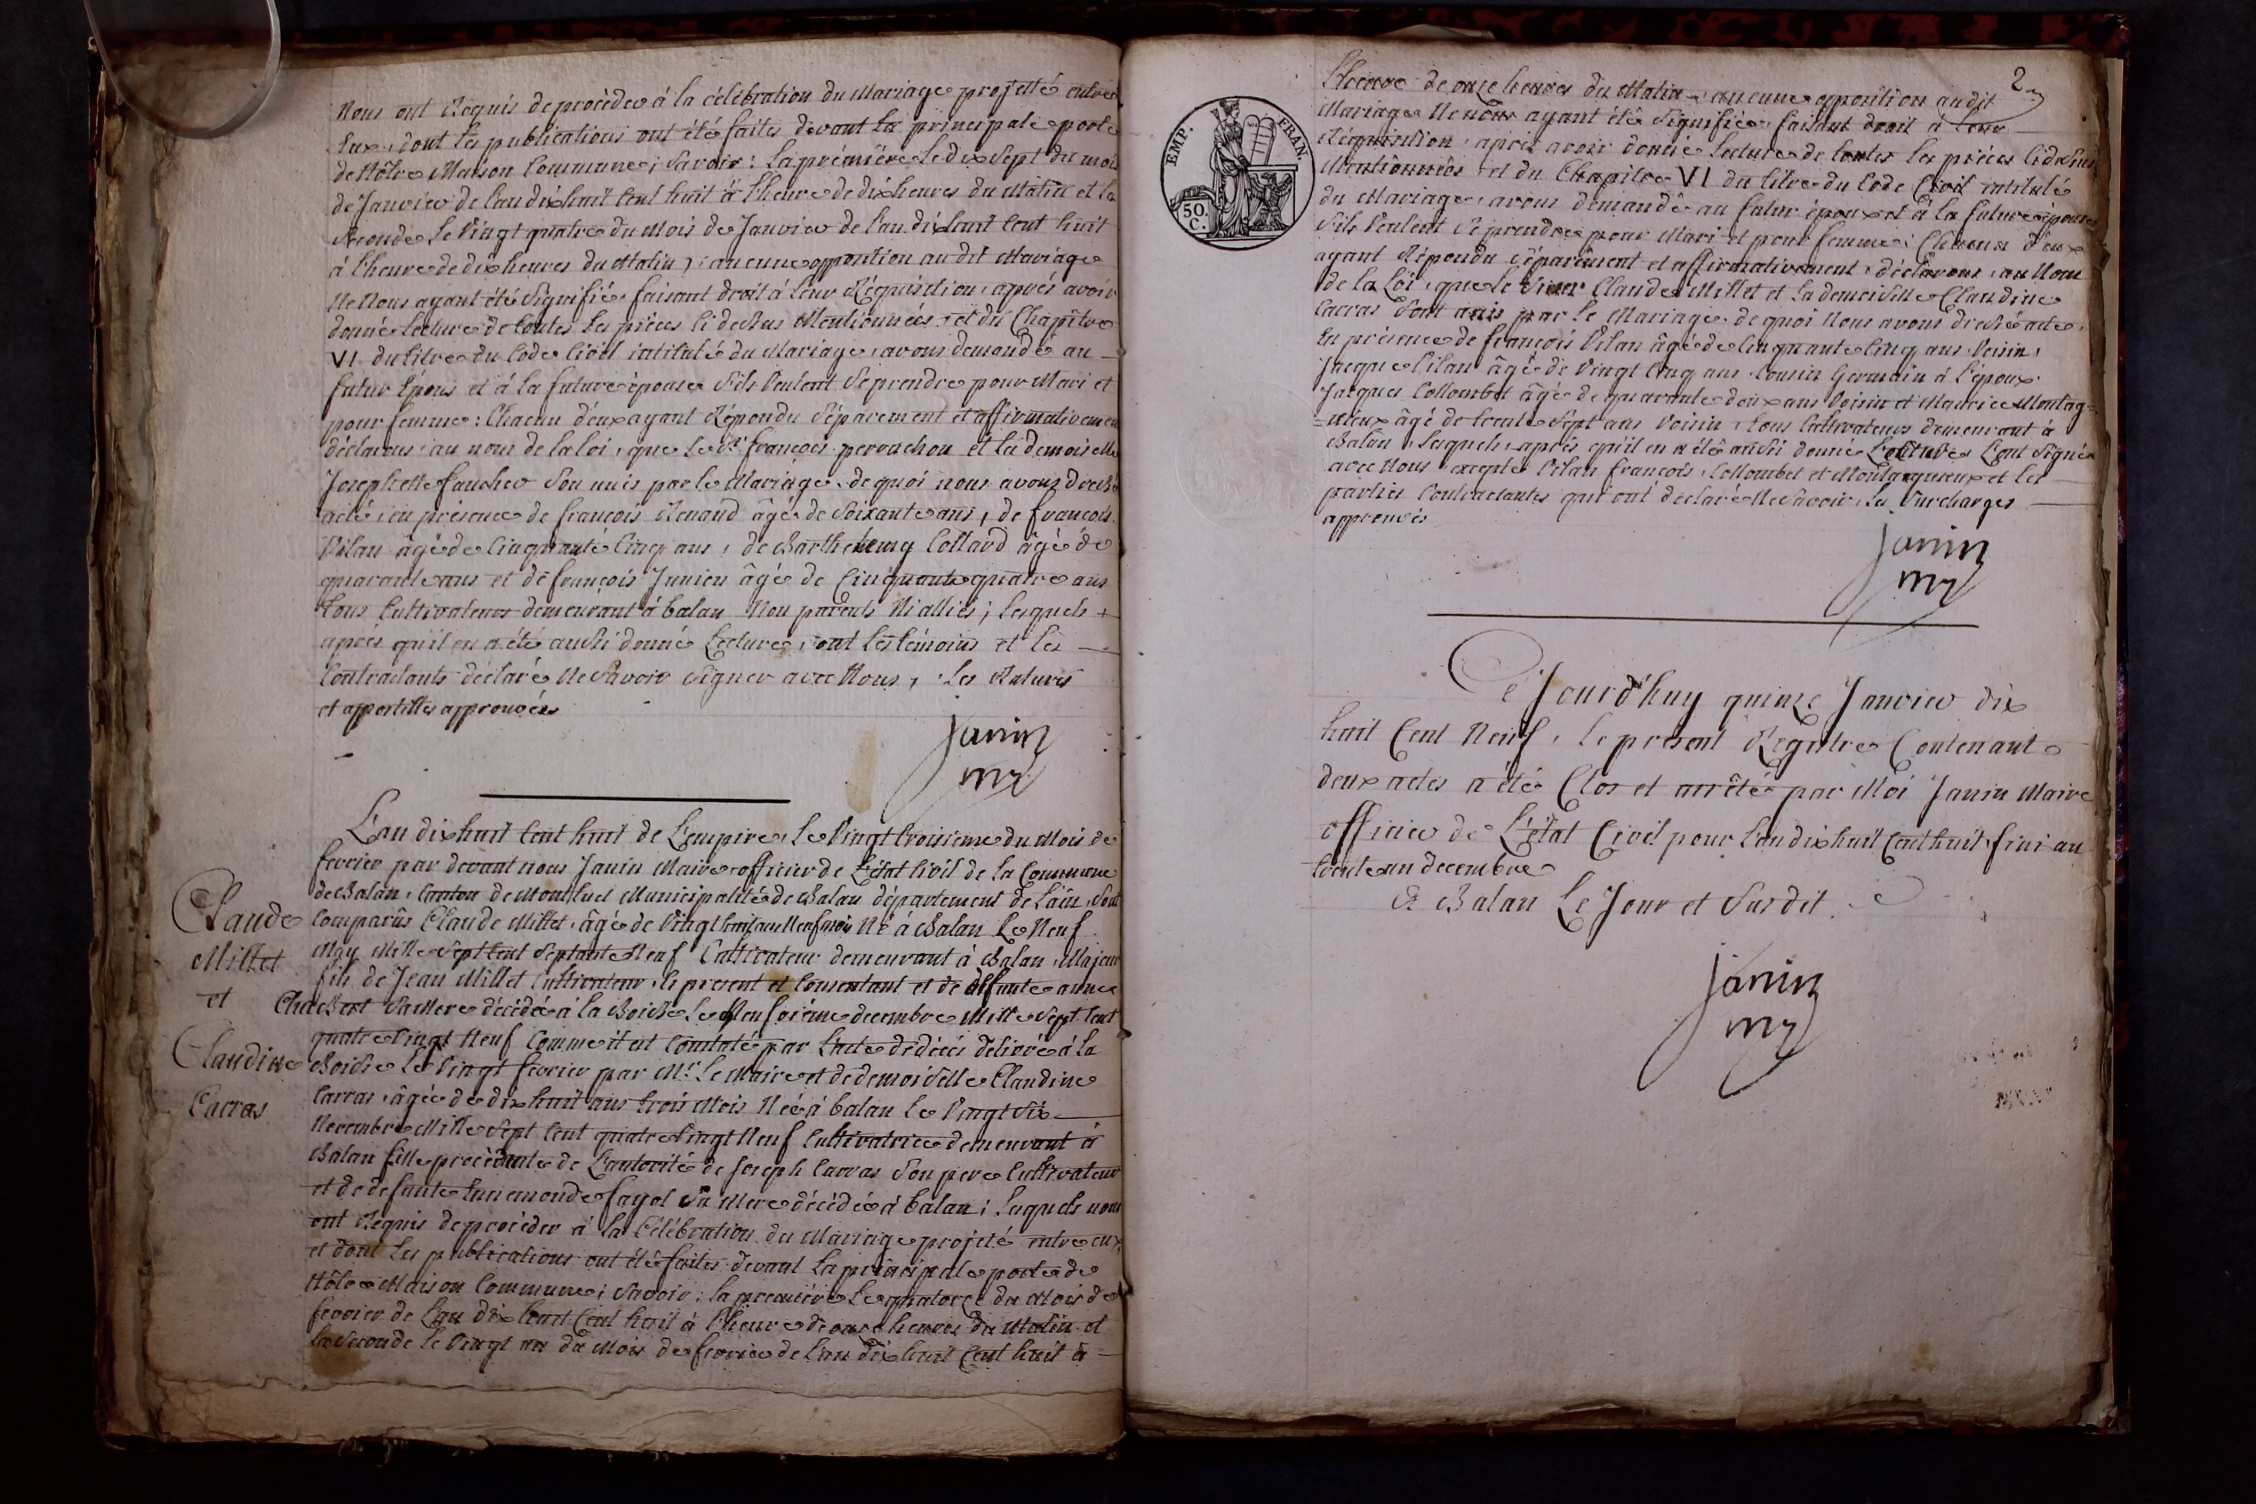 Nous ont Requis de procéder á la célébration du Mariage projetté entre
Eux, dont les publications ont été faites devant la principale porte
de Nôtre Maison Commune ; Savoir : la prémière le dix Sept du mois
de Janvier de l'an dix huit cent huit á l'heure de dix heures du Matin et la
Seconde le Vingt quatre du Mois de Janvier de l'an dix huit cent huit
á l'heure de dix heures du Matin, aucune opposition au dit Mariage
Ne Nous ayant été Signifié, faisant droit á leur Réquisition, aprés avoir
donné lecture de toutes les pièces ci dessus Mentionnées, et du Chapitre
VI du titre du Code Civil intitulé du Mariage, avons demandé au
futur Epous et á la future épouse S'ils Veulent Se prendre pour Mari et
pour femme : Chacun d'eux ayant Répondu Séparement et affirmativement
déclarons au nom de la loi, que le Sr françois perouchon et la demoiselle
Josephette faucher Son unis par le Mariage, de quoi nous avons dressé
acte, en présence de françois Renand âgé de Soixante ans, de françois
Pilan âgé de Cinquante Cinq ans, de Barthelemy Collard âgé de
quarante ans et de françois Junien âgé de Cinquante quatre ans
tous Cultivateurs demeurant á balan Non parents Ni alliés ; lesquels
aprés qu'il en a été aussi donné Lecture, ont les témoins et les
Contractants déclaré Ne Savoir Signer avec Nous, les Ratures
et appostilles approuvées
Janin
my
L'an dix huit cent huit de L'empire, le Vingt troisieme du Mois de
fevrier par devant nous Janin Maire officier de L'état Civil de la Commune
de Balan, Canton de Montluel Municipalité de Balan département de L'ain, Sont
Comparûs Claude Millet, âgé de Vingt huit ans Neuf mois Né á Balan Le Neuf
May Mille Sept Cent Septante Neuf Cultivateur demeurant á Balan, Majeur
fils de Jean Millet Cultivateur, ci present et Consentant et de défunte anne
Sa Mere décédée á la Boisse le Neuf decembre Mille Sept Cent
quatre Vingt Neuf Comme il est Constaté par L'acte de décés délivré á la
Boisse le Vingt fevrier par Mr Le Maire et de demoiselle Claudine
Carras, âgée de dix huit ans trois Mois Née á balan le Vingt Six
Novembre Mille Sept Cent quatre Vingt Neuf Cultivatrice demeurant á
Balan fille procédante de L'autorité de Joseph Carras Son pere Cultivateur
et de defunte fayol Sa Mere décédée á balan ; lesquels nous
ont Requis de procéder á la Célébration du Mariage projeté entre eux
et dont les publications ont été faites devant la principale porte de
Nôtre Maison Commune ; Savoir : la premiere le quatorze du Mois de
fevrier de L'an dix huit Cent huit á l'heure de onze heures du Matin et
la Seconde le Vingt un du Mois de fevrier de l'an dix huit Cent huit á
Claude
Millet
et
Claudine
Carras
2
EMP. FRAN.
50. C.
l'heure de onze heures du Matin, aucune opposition au dit
Mariage Ne nous ayant été Signifiée, faisant droit á leur
Réquisition, aprés avoir donné lecture de toutes les pièces ci dessus
Mentionnées, et du Chapitre VI du titre du Code Civil intitulé
du Mariage, avons demandé au futur époux et á la future épouse
S'ils Veulent Se prendre pour Mari et pour femme ; Chacun d'eux
ayant Répondu Séparement et affirmativement, déclarons, au Nom
de la Loi, que le Sieur Claude Millet et la demoiselle Claudine
Carras Sont unis par le Mariage, de quoi Nous avons dressé acte,
En présence de françois Pilan âgé de Cinquante Cinq ans Voisin,
Jacque Pilan âgé de Vingt Cinq ans Cousin Germain á l'époux
Jacques Collombet âgé de quarante deux ans Voisin et Maurice Montag-
=nieux âgé de trente Sept ans Voisin, tous Cultivateurs demeurant á
Balan, lesquels, aprés qu'il en a été aussi donné Lecture L'ont Signé
avec Nous excepté Pilan francois, Collombet et Montagnieux et les
parties Contractantes qui ont déclaré Ne Savoir, les Surcharges
approuvés
Janin
my
Ce Jourd'huy quinze Janvier dix
huit Cent Neuf, le present Registre Contenant
deux actes a été Clos et arrêté par Moi Janin Maire
officier de L'état Civil pour l'an dix huit Cent huit, fini au
trente un decembre
á Balan Le Jour et Susdit.
Janin
my